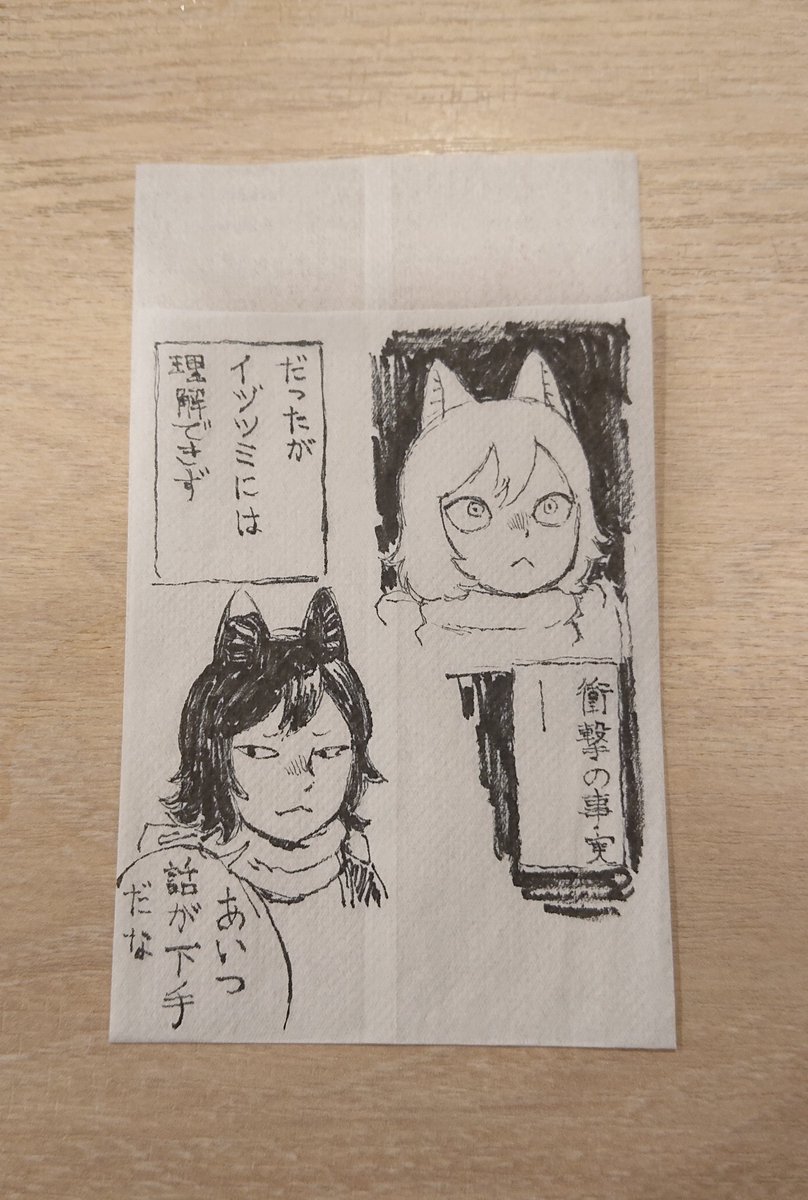 衝撃の事実
―
だったが
イヅツミには
理解できず
あいつ
話が下手
だな